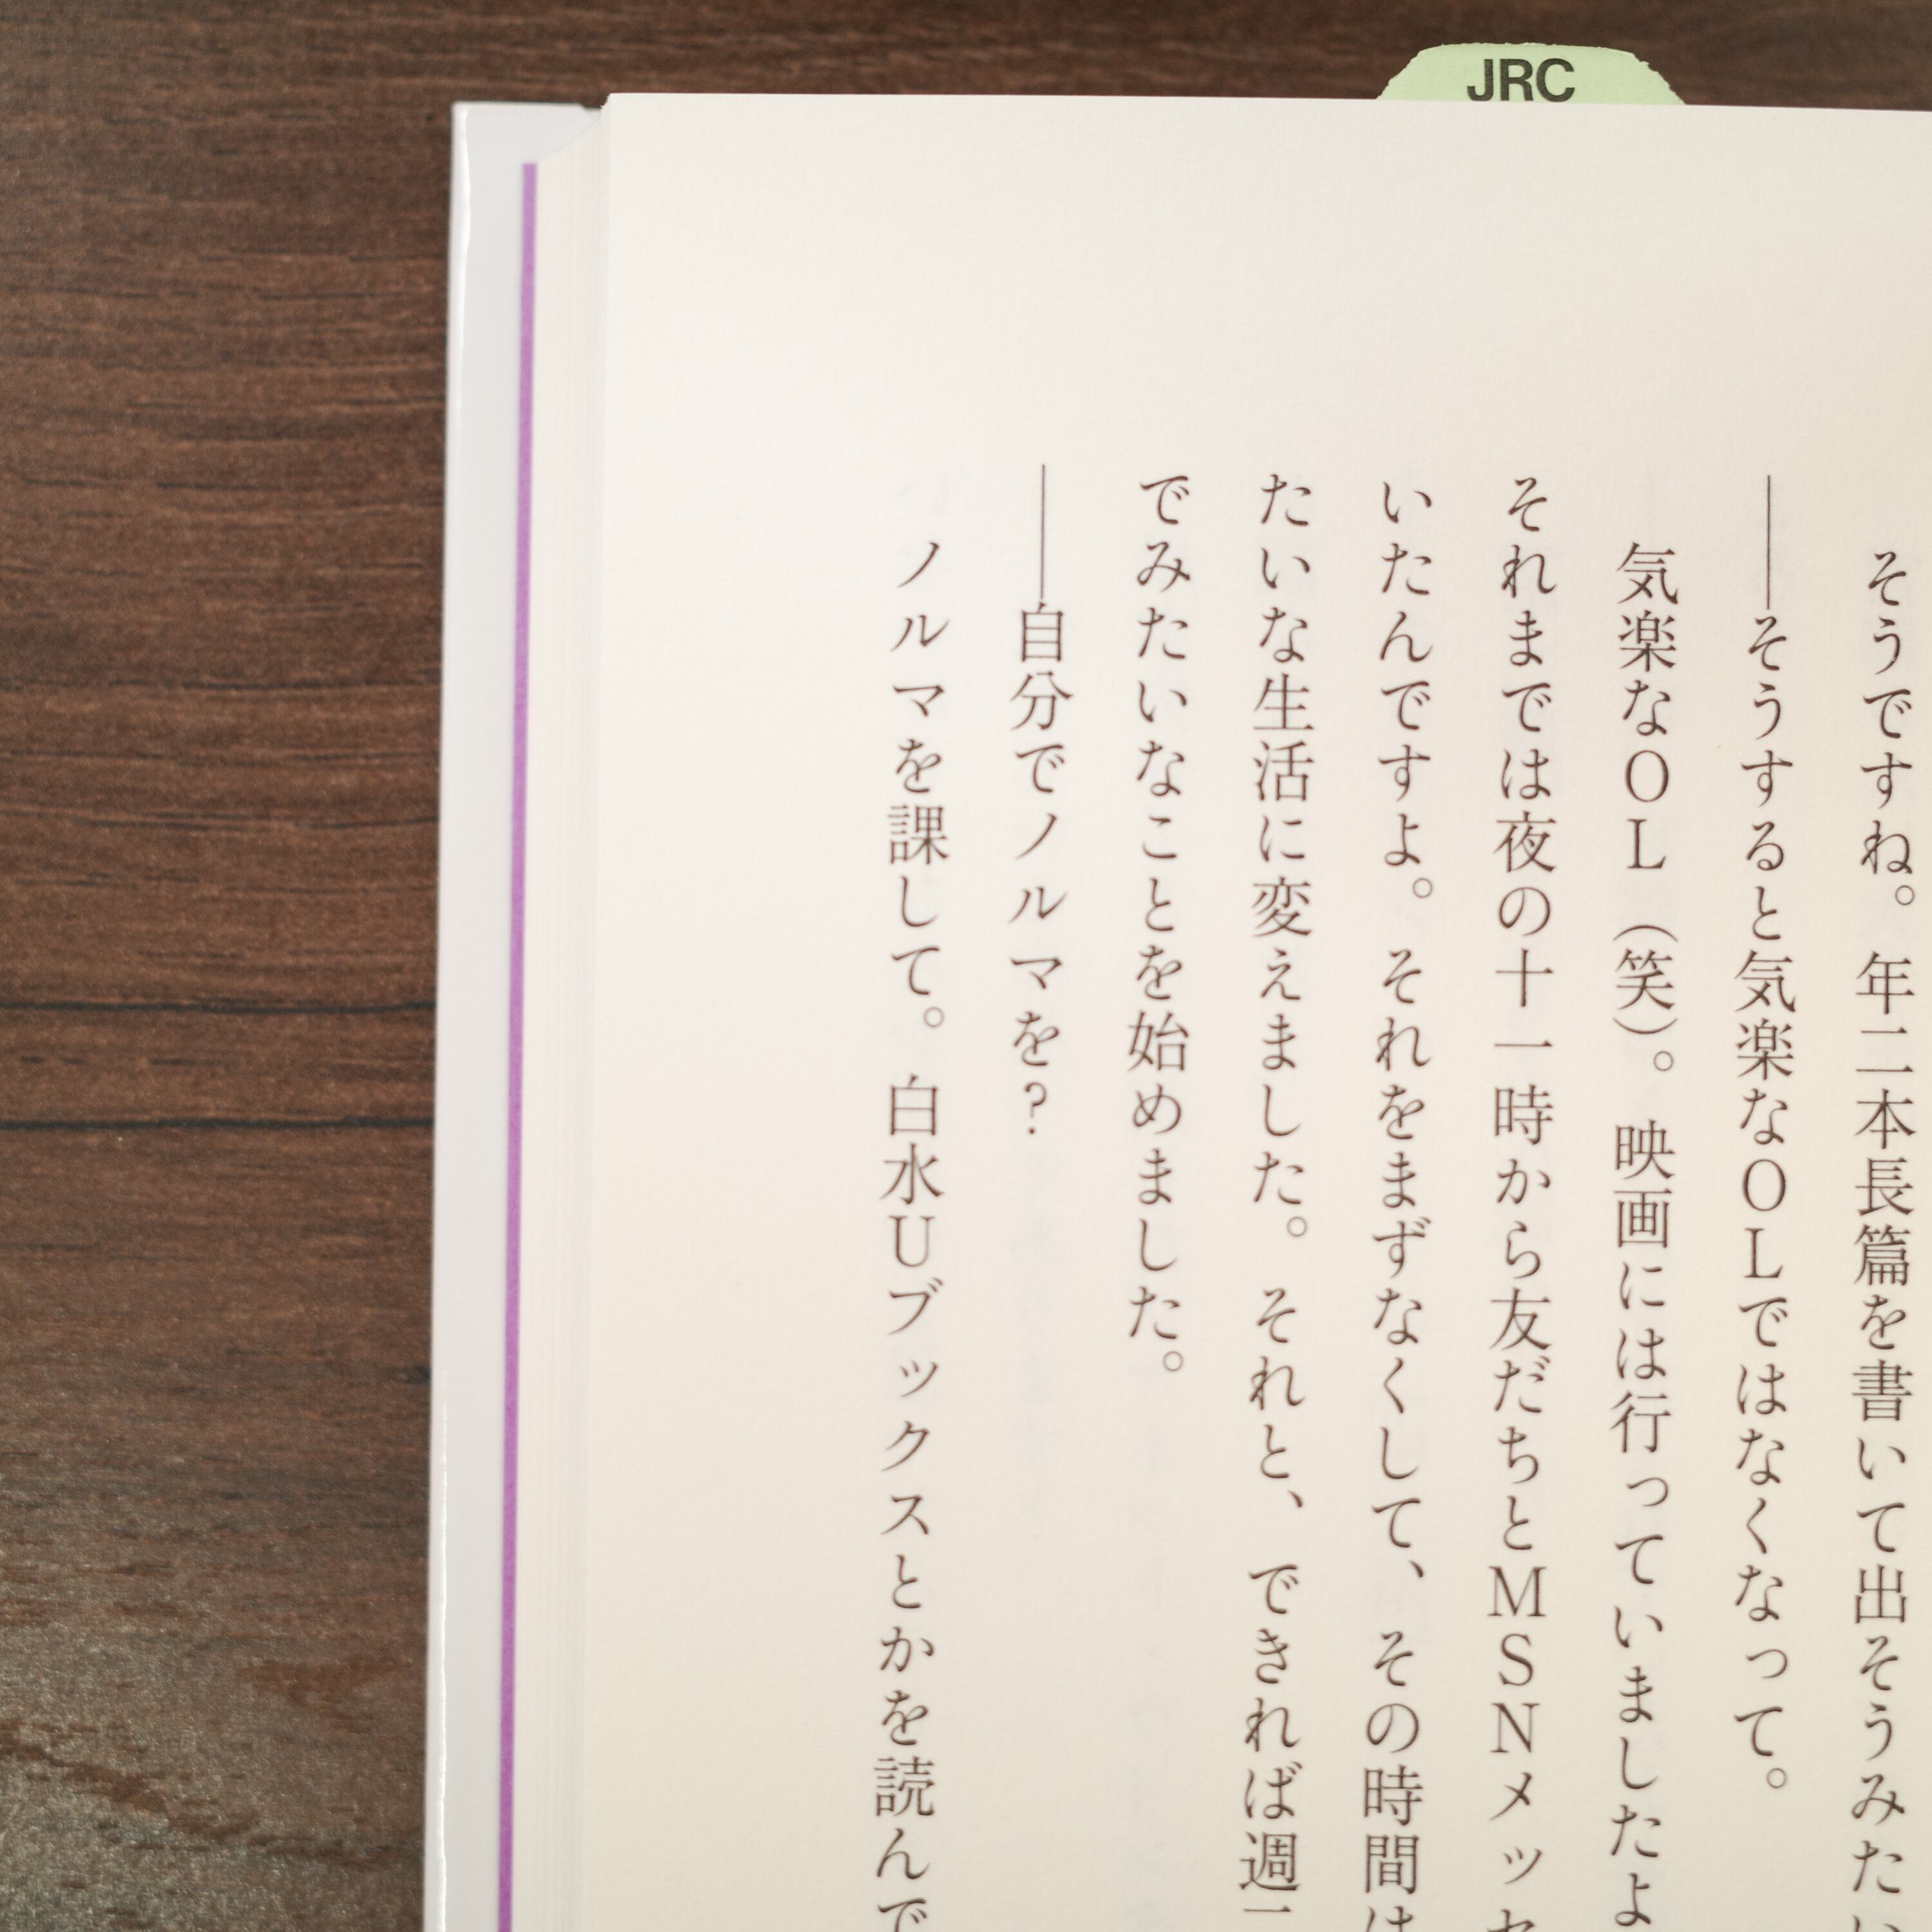 JRC
そうですね。年二本長篇を書いて出そうみたい
――そうすると気楽なOLではなくなって。
気楽なOL(笑)。映画には行っていましたよ
それまでは夜の十一時から友だちとMSNメッセ
いたんですよ。それをまずなくして、その時間は
たいな生活に変えました。それと、できれば週
でみたいなことを始めました。
――自分でノルマを?
ノルマを課して。白水Uブックスとかを読んで